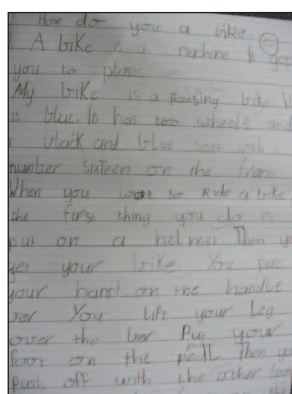 How do you a bike
A bike is a machine to get
you to places
My bike is a Raising bike it
is blue. It has two wheels and
black and blue seat with a
number sixteen on the frame
When you want to Ride a bike
the first thing you do is
put on a helmet Then yo
get your bike You put
your hand on the handle
bar You lift your leg
over the bar Put your
foot on the pedll Then yo
push off with the other